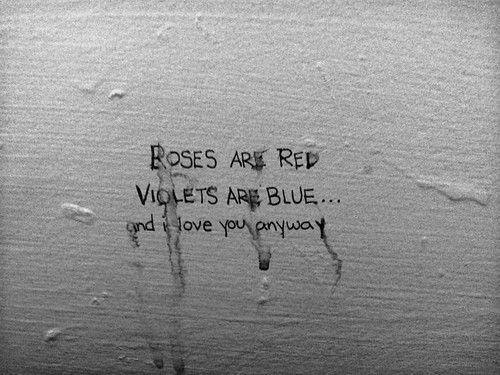 ROSES ARE RED
VIOLETS ARE BLUE...
and i love you anyway